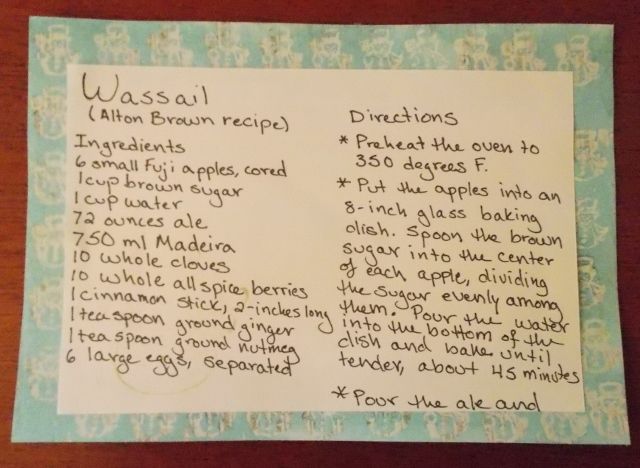 Wassail
(Alton Brown recipe)
Ingredients
6 small Fuji apples, cored
1 cup brown sugar
1 cup water
72 ounces ale
750 ml Madeira
10 whole cloves
10 whole allspice berries
1 cinnamon stick, 2-inches long
1 teaspoon ground ginger
1 teaspoon ground nutmeg
6 large eggs, separated
Directions
* Preheat the oven to
350 degrees F.
* Put the apples into an
8-inch glass baking
dish. Spoon the brown
sugar into the center
of each apple, dividing
the sugar evenly among
them. Pour the water
into the bottom of the
dish and bake until
tender, about 45 minutes
* Pour the ale and